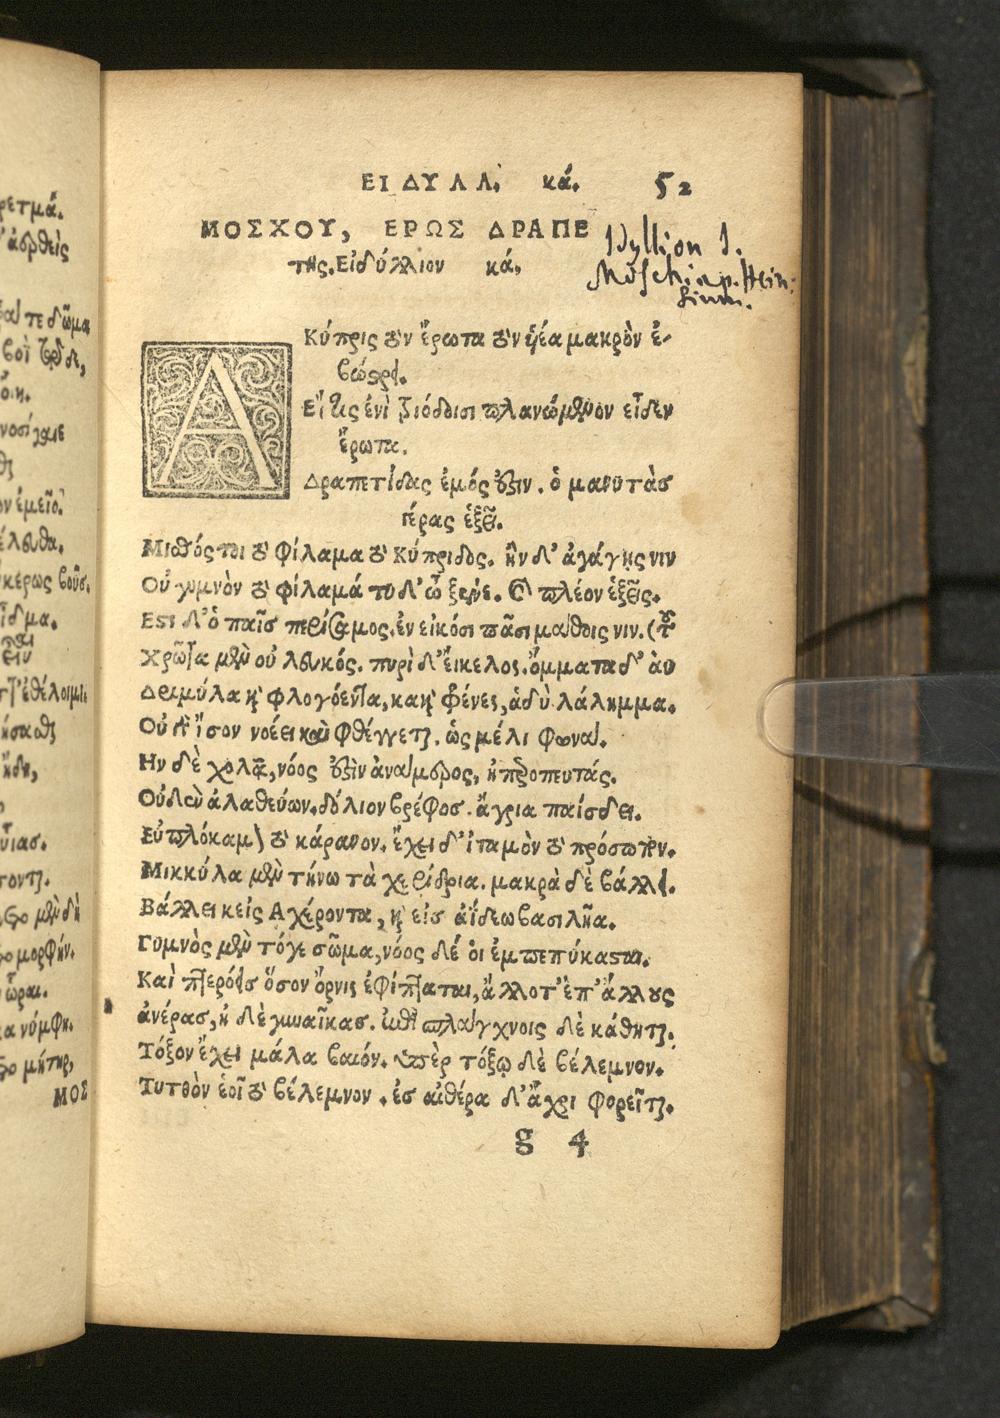 ΕΙΔΥΛΛ. κά. 52
ΜΟΣΧΟΥ, ΕΡΩΣ ΔΡΑΠΕ
της. Εἰδύλλιον κά.
Idyllion 1.
Moschi ap. Hein:
sium.
Α Κύπρις τὸν ἔρωτα τὸν ὑέα μακρὸν ἐ-
βώστρει.
Εἴ τις ἐνὶ τριόδοισι πλανώμενον εἶδεν
ἔρωτα.
Δραπετίδας ἐμός ἐστιν. ὁ μανυτὰσ
γέρας ἑξεῖ.
Μισθός τοι τὸ φίλαμα τὸ Κύπριδος. ἢν δ' ἀγάγῃς νιν
Οὐ γυμνὸν τὸ φίλαμά τὺ δ' ὦ ξεῖνε. καὶ πλέον ἑξεῖς.
Εστι δ' ὁ παῖσ περίσαμος. ἐν εἰκόσι πᾶσι μάθοις νιν. (τοῦ
Χρῶτα μὲν οὐ λευκός. πυρὶ δ' εἴκελος. ὄμματα δ' ἀυ
Δριμύλα καὶ φλογόεντα, κακαὶ φρένες, ἁδὺ λάλημμα.
Οὐ γὰρ ἴσον νοέει καὶ φθέγγεται. ὡς μέλι φωνά.
Ην δὲ χολᾷ, νόος ἐστὶν ἀνάμερος, ἠπεροπευτάς.
Οὐδὲν ἀλαθεύων. δόλιον βρέφοσ. ἄγρια παίσδει.
Εὐπλόκαμον τὸ κάρανον. ἔχει δ' ἰταμὸν τὸ πρόσωπον.
Μικκύλα μὲν τήνω τὰ χερίδρια. μακρὰ δὲ βάλλει.
Βάλλει κεἰς Αχέροντα, καὶ εἰσ ἀΐδεω βασιλῆα.
Γυμνὸς μὲν τόγε σῶμα, νόος δέ ὁι ἐμπεπύκασται.
Καὶ πτερόεισ ὅσον ὄρνις ἐφίπταται, ἄλλοτ' ἐπ' ἄλλους
ἀνέρασ, ἠδὲ γυναῖκασ. ἐπὶ σπλάγχνοις δὲ κάθηται.
Τόξον ἔχει μάλα βαιόν. ὑπὲρ τόξῳ δὲ βέλεμνον.
Τυτθὸν ἑοῖ τὸ βέλεμνον. ἐσ αἰθέρα δ' ἄχρι φορεῖται.
g 4